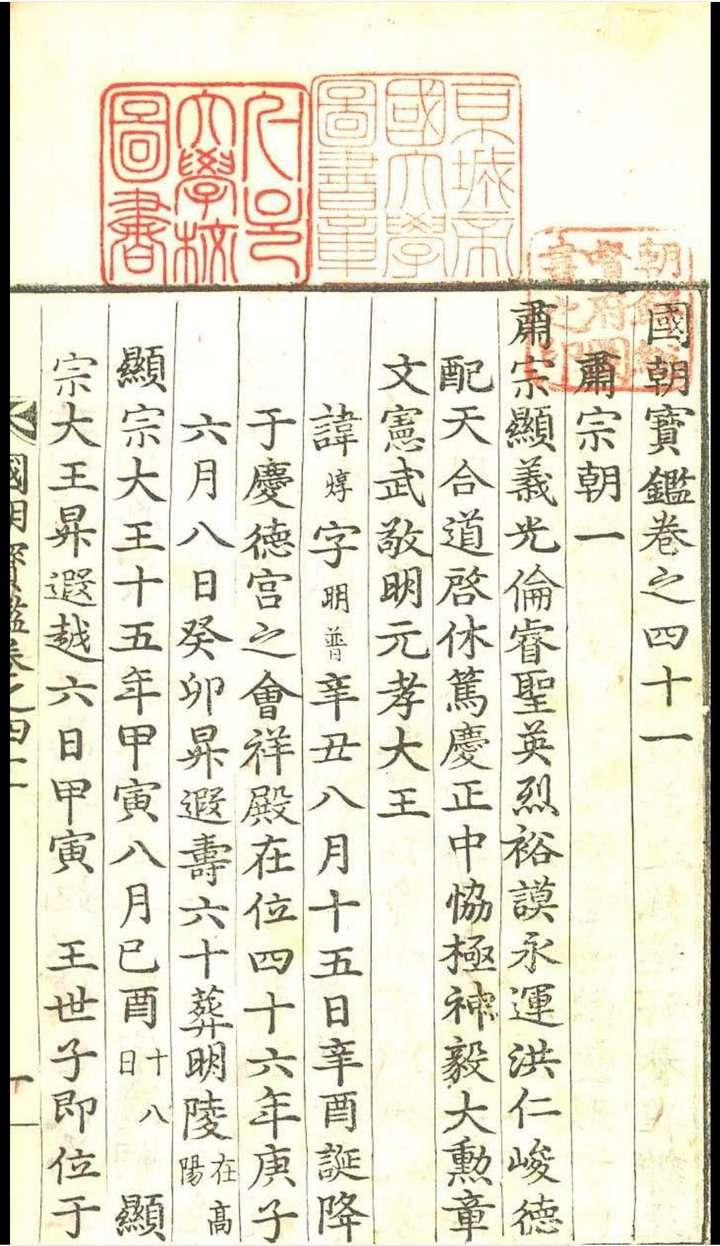 朝鮮總
督府圖
書之印
京城帝
國大學
圖書章
서울
大學校
圖書
國朝寶鑑卷之四十一
肅宗朝一
肅宗顯義光倫睿聖英烈裕謨永運洪仁峻德
配天合道啓休篤慶正中恊極神毅大勳章
文憲武敬明元孝大王
諱焞字明普辛丑八月十五日辛酉誕降
于慶德宮之會祥殿在位四十六年庚子
六月八日癸卯昇遐壽六十葬明陵在高陽
顯宗大王十五年甲寅八月己酉十八日 顯
宗大王昇遐越六日甲寅 王世子即位于
國朝寶鑑卷之四十一